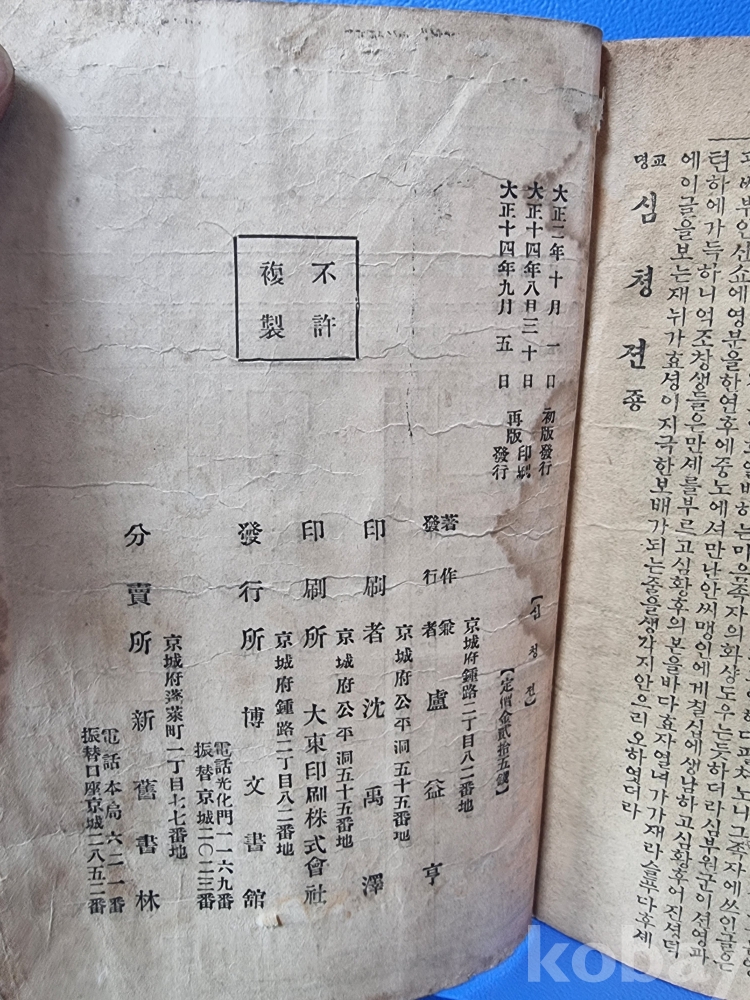 텬하에가득하니억조창생들은만세를부르고심황후의본을바다효자열녀가가재라슬푸다후세
에이글을보는재뉘가효셩이지극한보배가되는줄을생각지안으리오하엿더라
교명 심청젼 죵
大正二年十月一日 初版發行
大正十四年八月三十日 再版印刷
大正十四年九月五日 發行
不許
複製
【심청전】
【定價金貳拾五錢】
京城府鍾路二丁目八二番地
著作兼
發行者 盧益亨
京城府公平洞五十五番地
印刷者 沈禹澤
京城府公平洞五十五番地
印刷所 大東印刷株式會社
京城府鍾路二丁目八二番地
發行所 博文書館
電話光化門一一六九番
振替京城二〇二三番
京城府蓬萊町一丁目七七番地
分賣所 新舊書林
電話本局六二一番
振替口座京城二八五二番
kobay